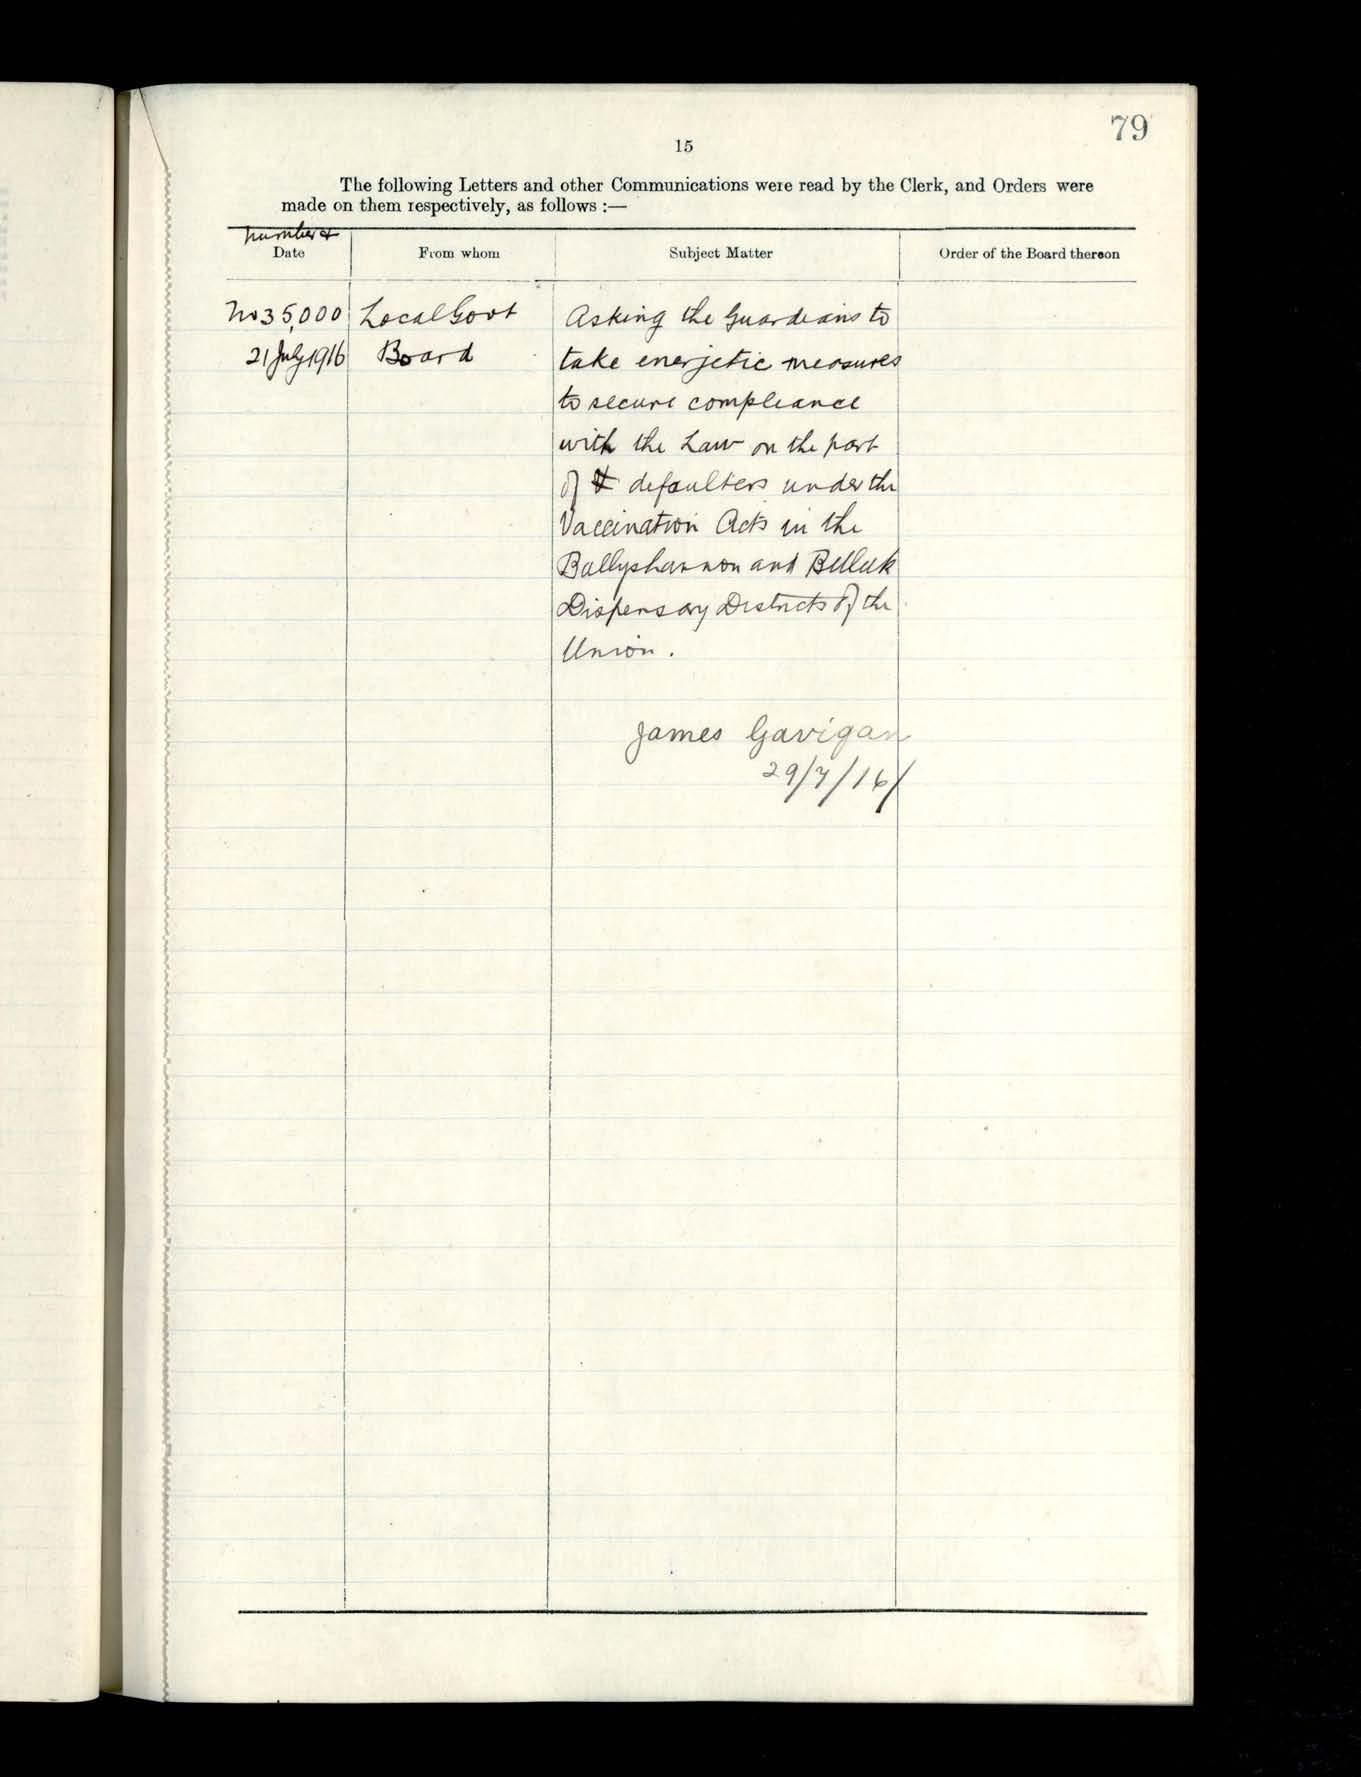 79
15
The following Letters and other Communications were read by the Clerk, and Orders were
made on them respectively, as follows :—
Number &
Date From whom Subject Matter Order of the Board thereon
No 35,000 Local Govt Asking the Guardians to
21 July 1916 Board take energetic measures
to secure compliance
with the Law on the part
of defaulters under the
Vaccination Acts in the
Ballyshannon and Belleek
Dispensary Districts of the
Union.
James Gavigan
29/7/16/